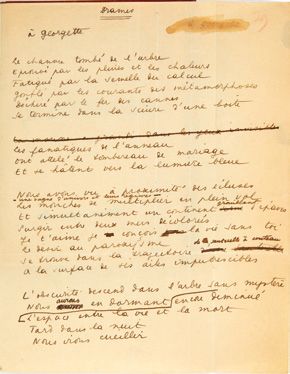 Drames
à georgette
Le chanvre tombé de l'arbre
Eprouvé par les pluies et les chaleurs
Fatigué par la semelle du calcul
Gonflé par les courants des métamorphoses
Déchiré par le fer des cannes
Se termine dans la sciure d'une boîte
Les fanatiques de l'anneau
ont attelé le tombereau de mariage
Et se hâtent vers la lumière bleue
Nous avons vu à proximité des écluses
Les mouches multiplier en plein vol
Et simultanément un continent
Surgir entre deux mers décolorées
Je t'aime je conçois la vie sans toi
Le désir au paroxysme
Se trouve dans la trajectoire
à la surface de ses ailes
L'obscurité descend dans l'arbre sans mystère
Nous aurons en dormant encore démenoué
L'espace entre la vie et la mort
Tard dans la nuit
Nous irons cueillir